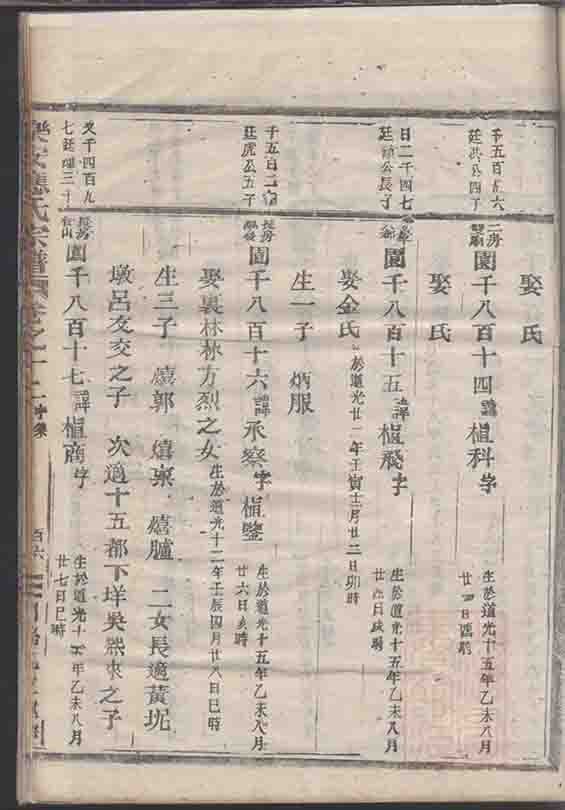 娶氏
千五百九六
廷洪公四子
二房
園千八百十四諱植科字
生於道光十五年乙未八月
廿四日酉時
娶氏
日二千四七
廷公長子
園千八百十五諱植飛字
生於道光十五年乙未八月
廿九日亥時
娶金氏
於道光廿一年壬寅十二月廿二日卯時
生一子 炳服
千五百二
廷虎公五子
長房
園千八百十六諱承察字植鑒
生於道光十五年乙未八月
廿六日亥時
娶裏林林方烈之女
生於道光十二年壬辰四月廿八日巳時
生三子 嬉郭 嬉 嬉臚 二女長適黃坭
墩呂交交之子 次適十五都下垟吳熙來之子
又千四百九
七廷三子
長房
園千八百十七諱植商字
生於道光十五年乙未八月
廿七日巳時
樂安應氏宗譜 卷之十二
百六